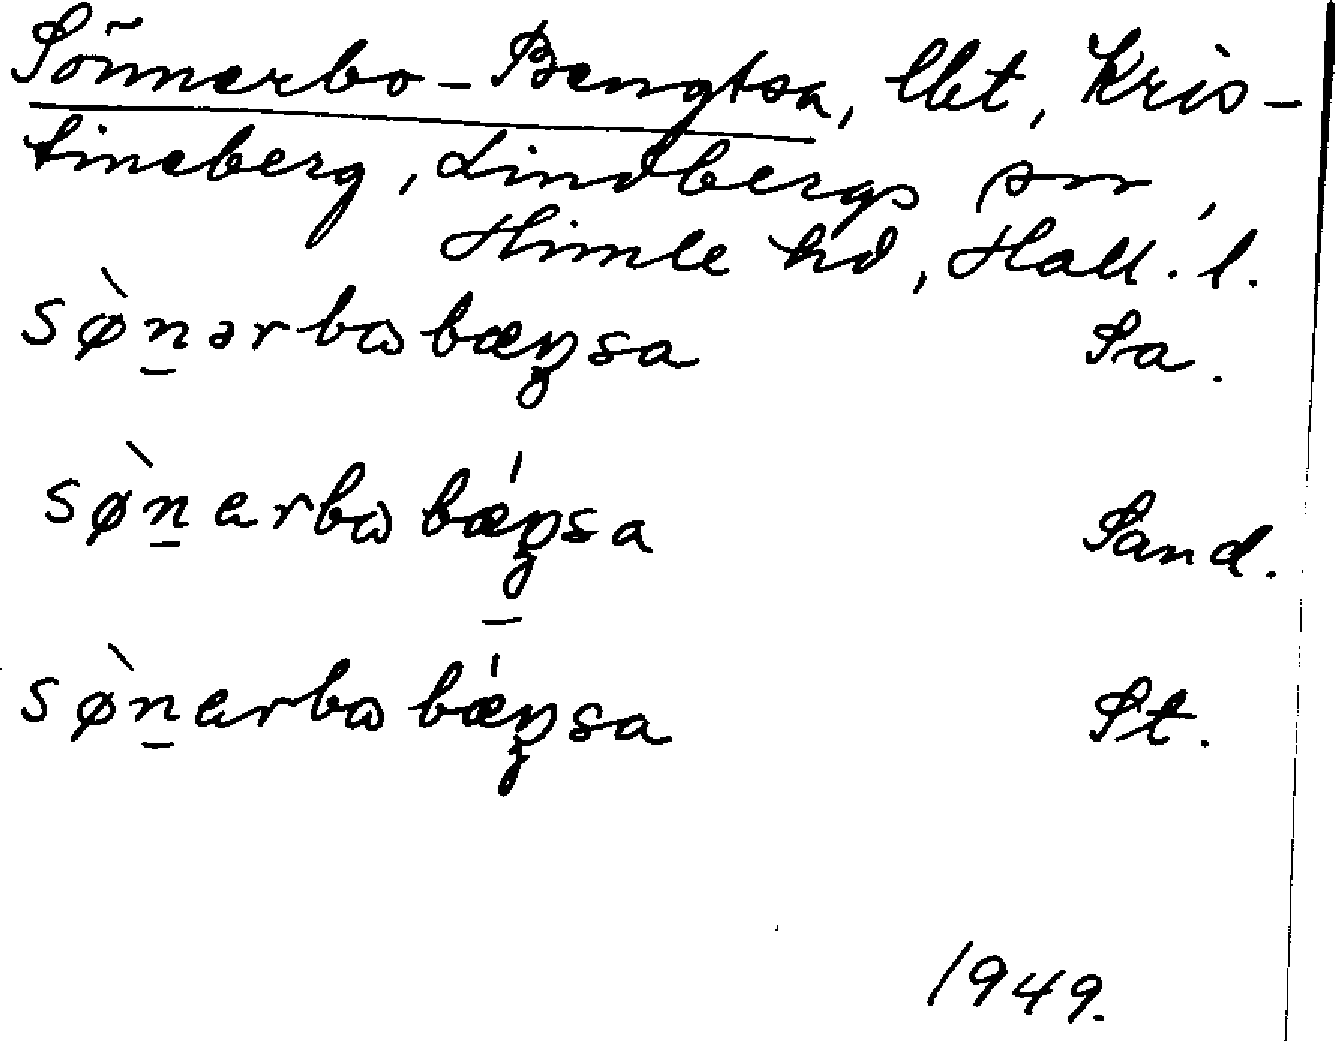 Sönnerbo-Bengtsa, lht, Kris-
tineberg, Lindbergs sn,
Himle hd, Hall. l.
sø̀n̠ərbɷbæŋsa Sa.
sø̀n̠arbɷbǽŋ̠sa Sand.
sø̀n̠arbɷbǽŋsa St.
1949.